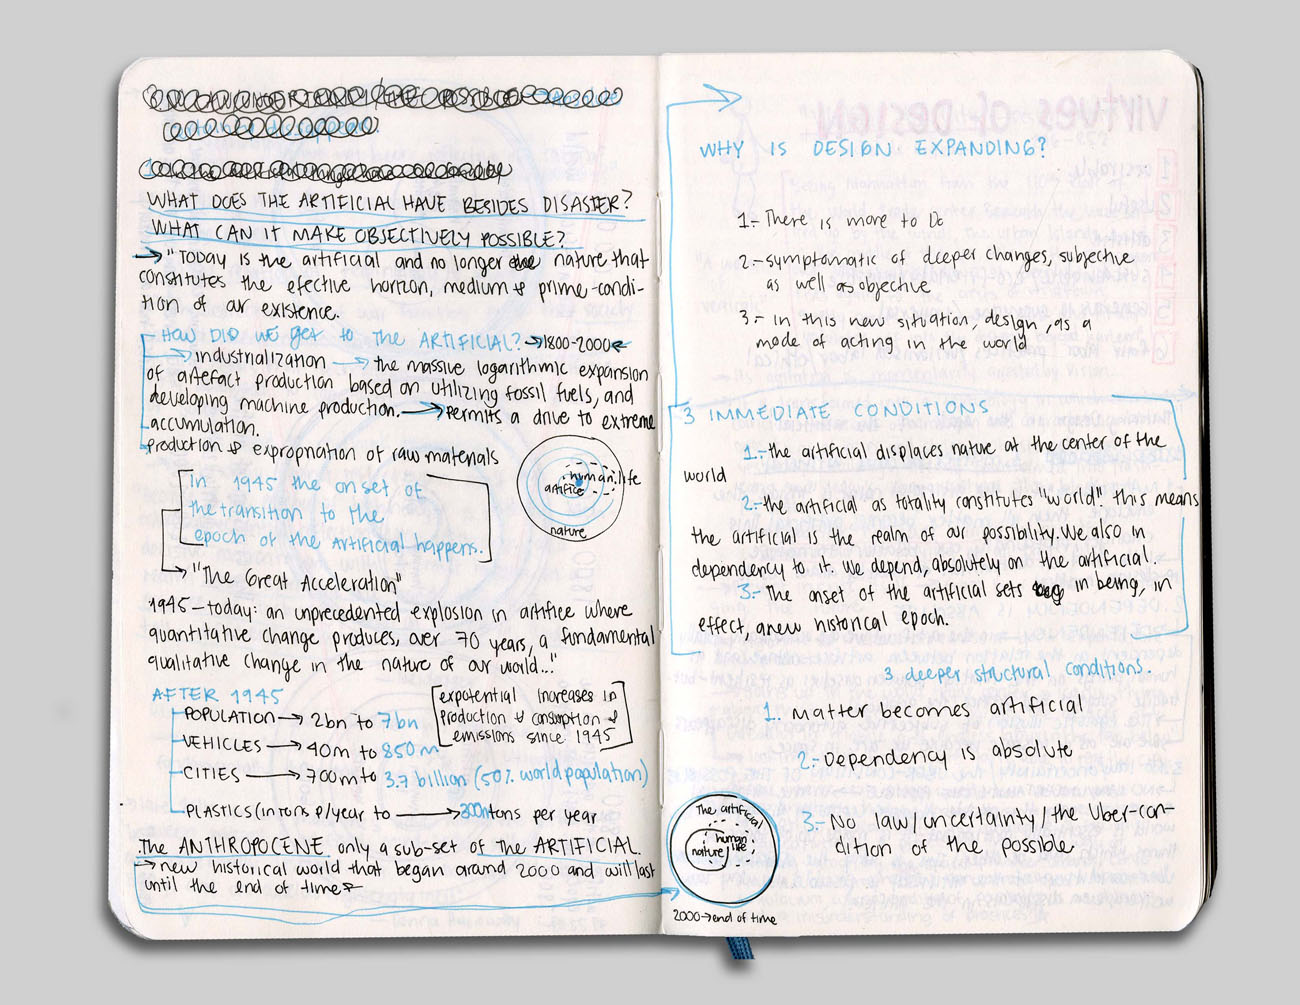 WHAT DOES THE ARTIFICIAL HAVE BESIDES DISASTER?
WHAT CAN IT MAKE OBJECTIVELY POSSIBLE?
→ "Today is the artificial and no longer the nature that
constitutes the efective horizon, medium & prime-condi-
tion of our existence.
- HOW DID WE GET TO THE ARTIFICIAL? → 1800-2000 ←
→ industrialization → the massive logarithmic expansion
of artefact production based on utilizing fossil fuels, and
developing machine production. → Permits a drive to extreme
accumulation.
production & expropriation of raw materials
In 1945 the onset of
the transition to the
epoch of the Artificial happens.
human life
artifice
nature
→ "The Great Acceleration"
1945 – today: an unprecedented explosion in artifice where
quantitative change produces, over 70 years, a fundamental
qualitative change in the nature of our world..."
AFTER 1945
POPULATION → 2bn to 7bn
VEHICLES → 40m to 850m
CITIES → 700m to 3.7 billion (50% world population)
PLASTICS (in tons p/year to → 300m tons per year
expotential increases in
production & consumption &
emissions since 1945
The ANTHROPOCENE only a sub-set of the ARTIFICIAL.
→ new historical world that began around 2000 and will last
until the end of time
WHY IS DESIGN EXPANDING?
1.- There is more to Do
2.- symptomatic of deeper changes, subjective
as well as objective
3.- in this new situation, design, as a
mode of acting in the world
3 IMMEDIATE CONDITIONS
1.- the artificial displaces nature at the center of the
world
2.- the artificial as totality constitutes "world" this means
the artificial is the realm of our possibility. We also in
dependency to it. We depend, absolutely on the artificial.
3.- The onset of the artificial sets in being, in
effect, a new historical epoch.
3 deeper structural conditions.
1. Matter becomes artificial
2.- Dependency is absolute
3.- No law/uncertainty/the Uber-con-
dition of the possible
The artificial
human life
nature
2000 → end of time